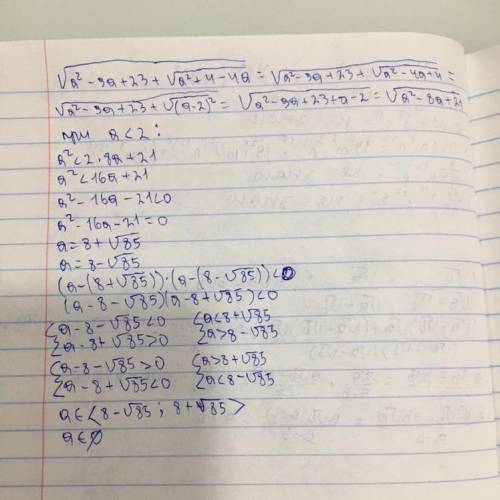 √(a² - 9a + 23 + √(a² + 4 - 4a)) = √(a² - 9a + 23 + √(a² - 4a + 4)) =
√(a² - 9a + 23 + √(a-2)²) = √(a² - 9a + 23 + a - 2) = √(a² - 8a + 21)
при a < 2:
a² < 2 · 8a + 21
a² < 16a + 21
a² - 16a - 21 < 0
a² - 16a - 21 = 0
a = 8 + √85
a = 8 - √85
(a - (8 + √85)) · (a - (8 - √85)) < 0
(a - 8 - √85)(a - 8 + √85) < 0
{ a - 8 - √85 < 0 { a < 8 + √85
{ a - 8 + √85 > 0 { a > 8 - √85
{ a - 8 - √85 > 0 { a > 8 + √85
{ a - 8 + √85 < 0 { a < 8 - √85
a ∈ < 8 - √85 ; 8 + √85 >
a ∈ ∅